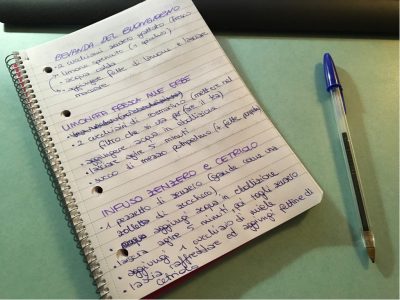 BEVANDA DEL BUONGIORNO
• 2 cucchiaini zenzero grattato fresco
• limone spremuto (1 spicchio)
• acqua calda
• aggiungere fette di limone e lasciare
macerare
LIMONATA FREDDA ALLE ERBE
• 2 cucchiaini di rosmarino (mettere nel
filtro che si usa per fare il tea)
• aggiungere acqua in ebollizione
• lascia agire 5 minuti
• succo di mezzo pompelmo (+ fette
INFUSO ZENZERO e CETRIOLO
• 1 pezzetto di zenzero (grande come una
zolletta di zucchero)
• aggiungi acqua in ebollizione
• lascia agire 5 minuti, poi togli zenzero
• aggiungi 1 cucchiaino di miele
• lascia raffreddare ed aggiungi fettine di
cetriolo